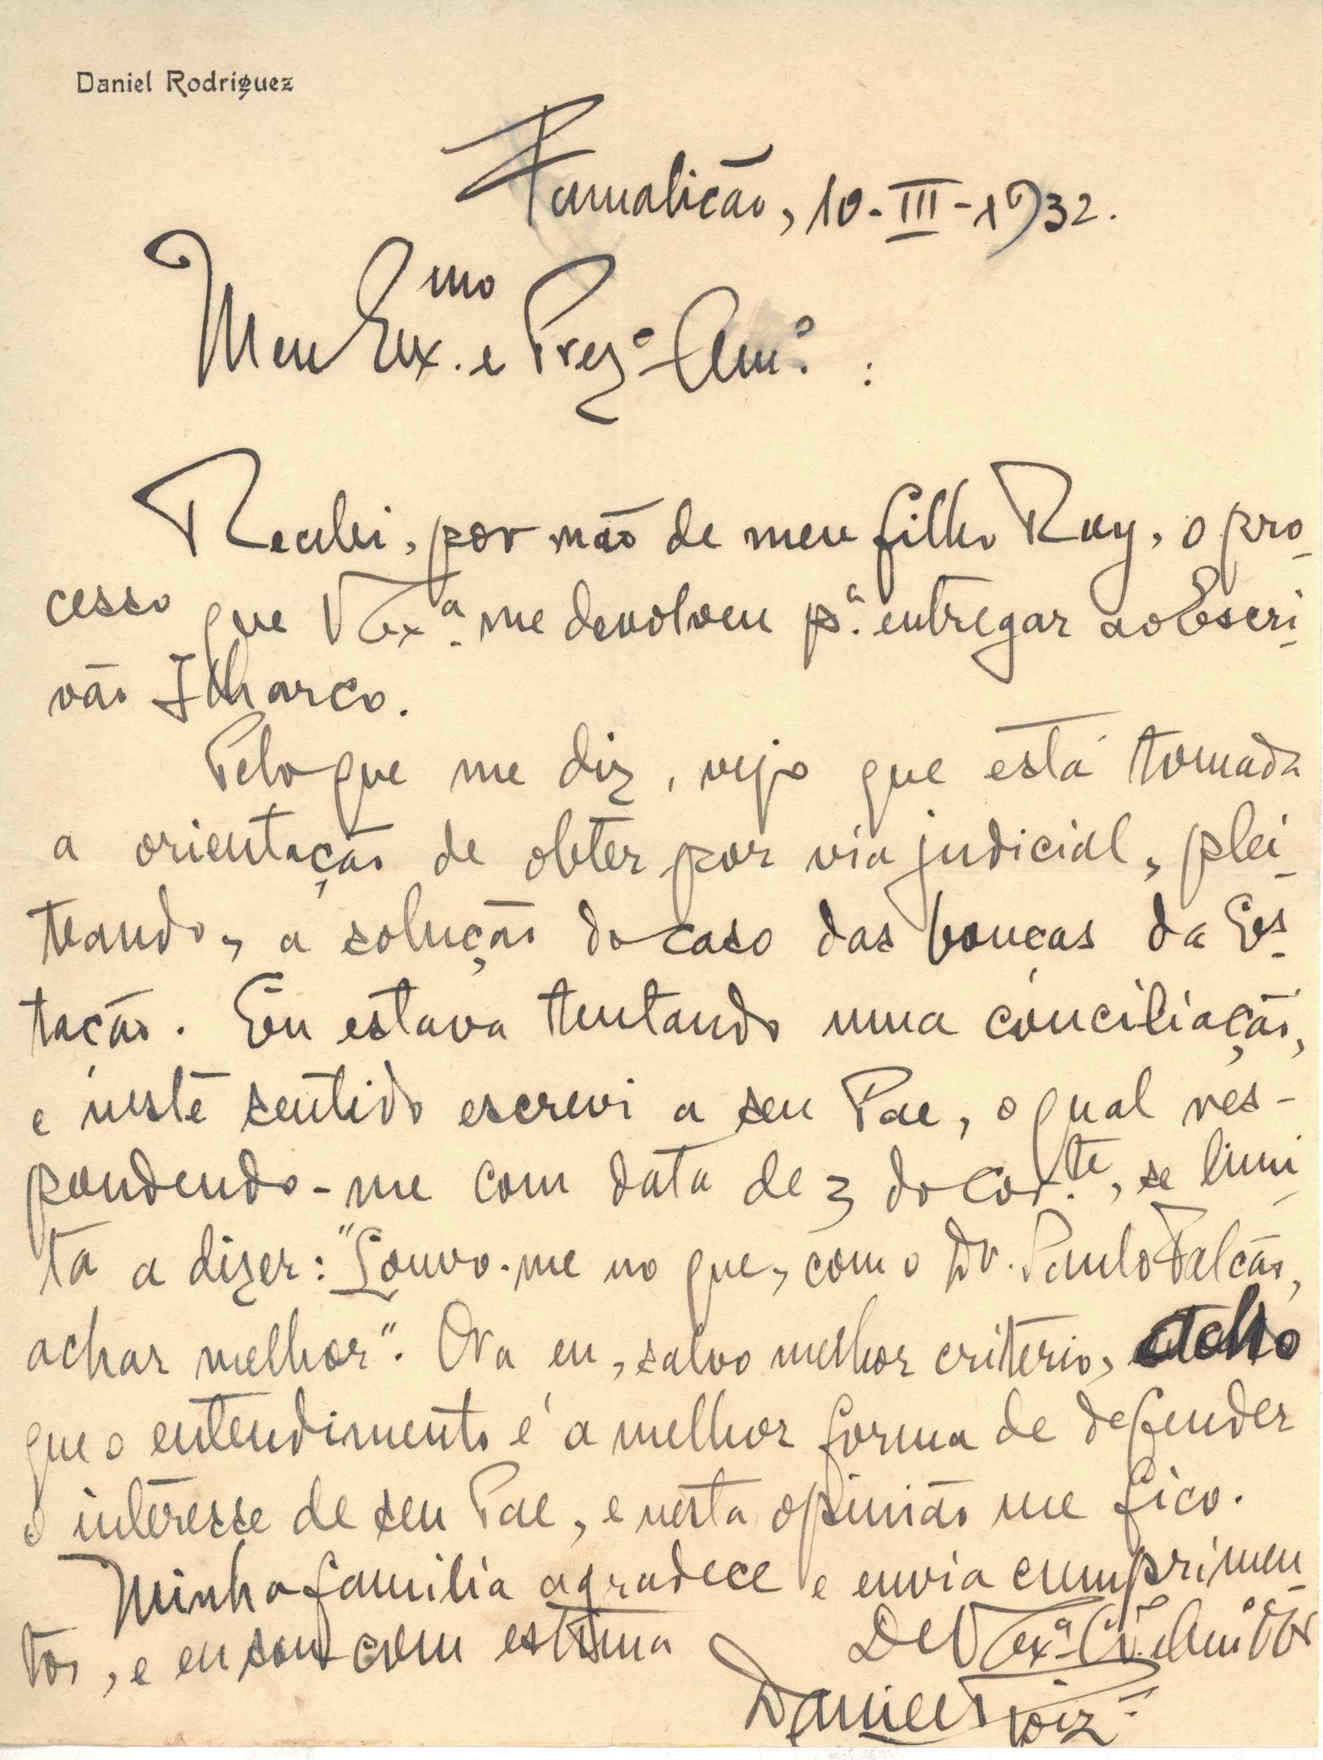 Daniel Rodriguez
Famalicão, 10-III-1932.
Meu Ex.mo e Prez.º Am.º :
Recebi, por mão de meu filho Ruy, o pro-
cesso que V. Ex.ª me devolveu p.ª entregar ao Escri-
vão Ilharco.
Pelo que me diz, vejo que está tomada
a orientação de obter por via judicial, plei-
teando, a solução do caso das bouças da Es-
tação. Eu estava tentando uma conciliação,
e neste sentido escrevi a seu Pae, o qual res-
pondendo-me com data de 3 do cor.te, se limi-
ta a dizer: "Louvo-me no que, com o Dr. Paulo Falcão,
achar melhor". Ora eu, salvo melhor criterio, acho
que o entendimento é a melhor forma de defender
o interesse de seu Pae, e nesta opinião me fico.
Minha familia agradece e envia cumprimen-
tos, e eu sou com estima
De V. Ex.ª
Daniel Roiz